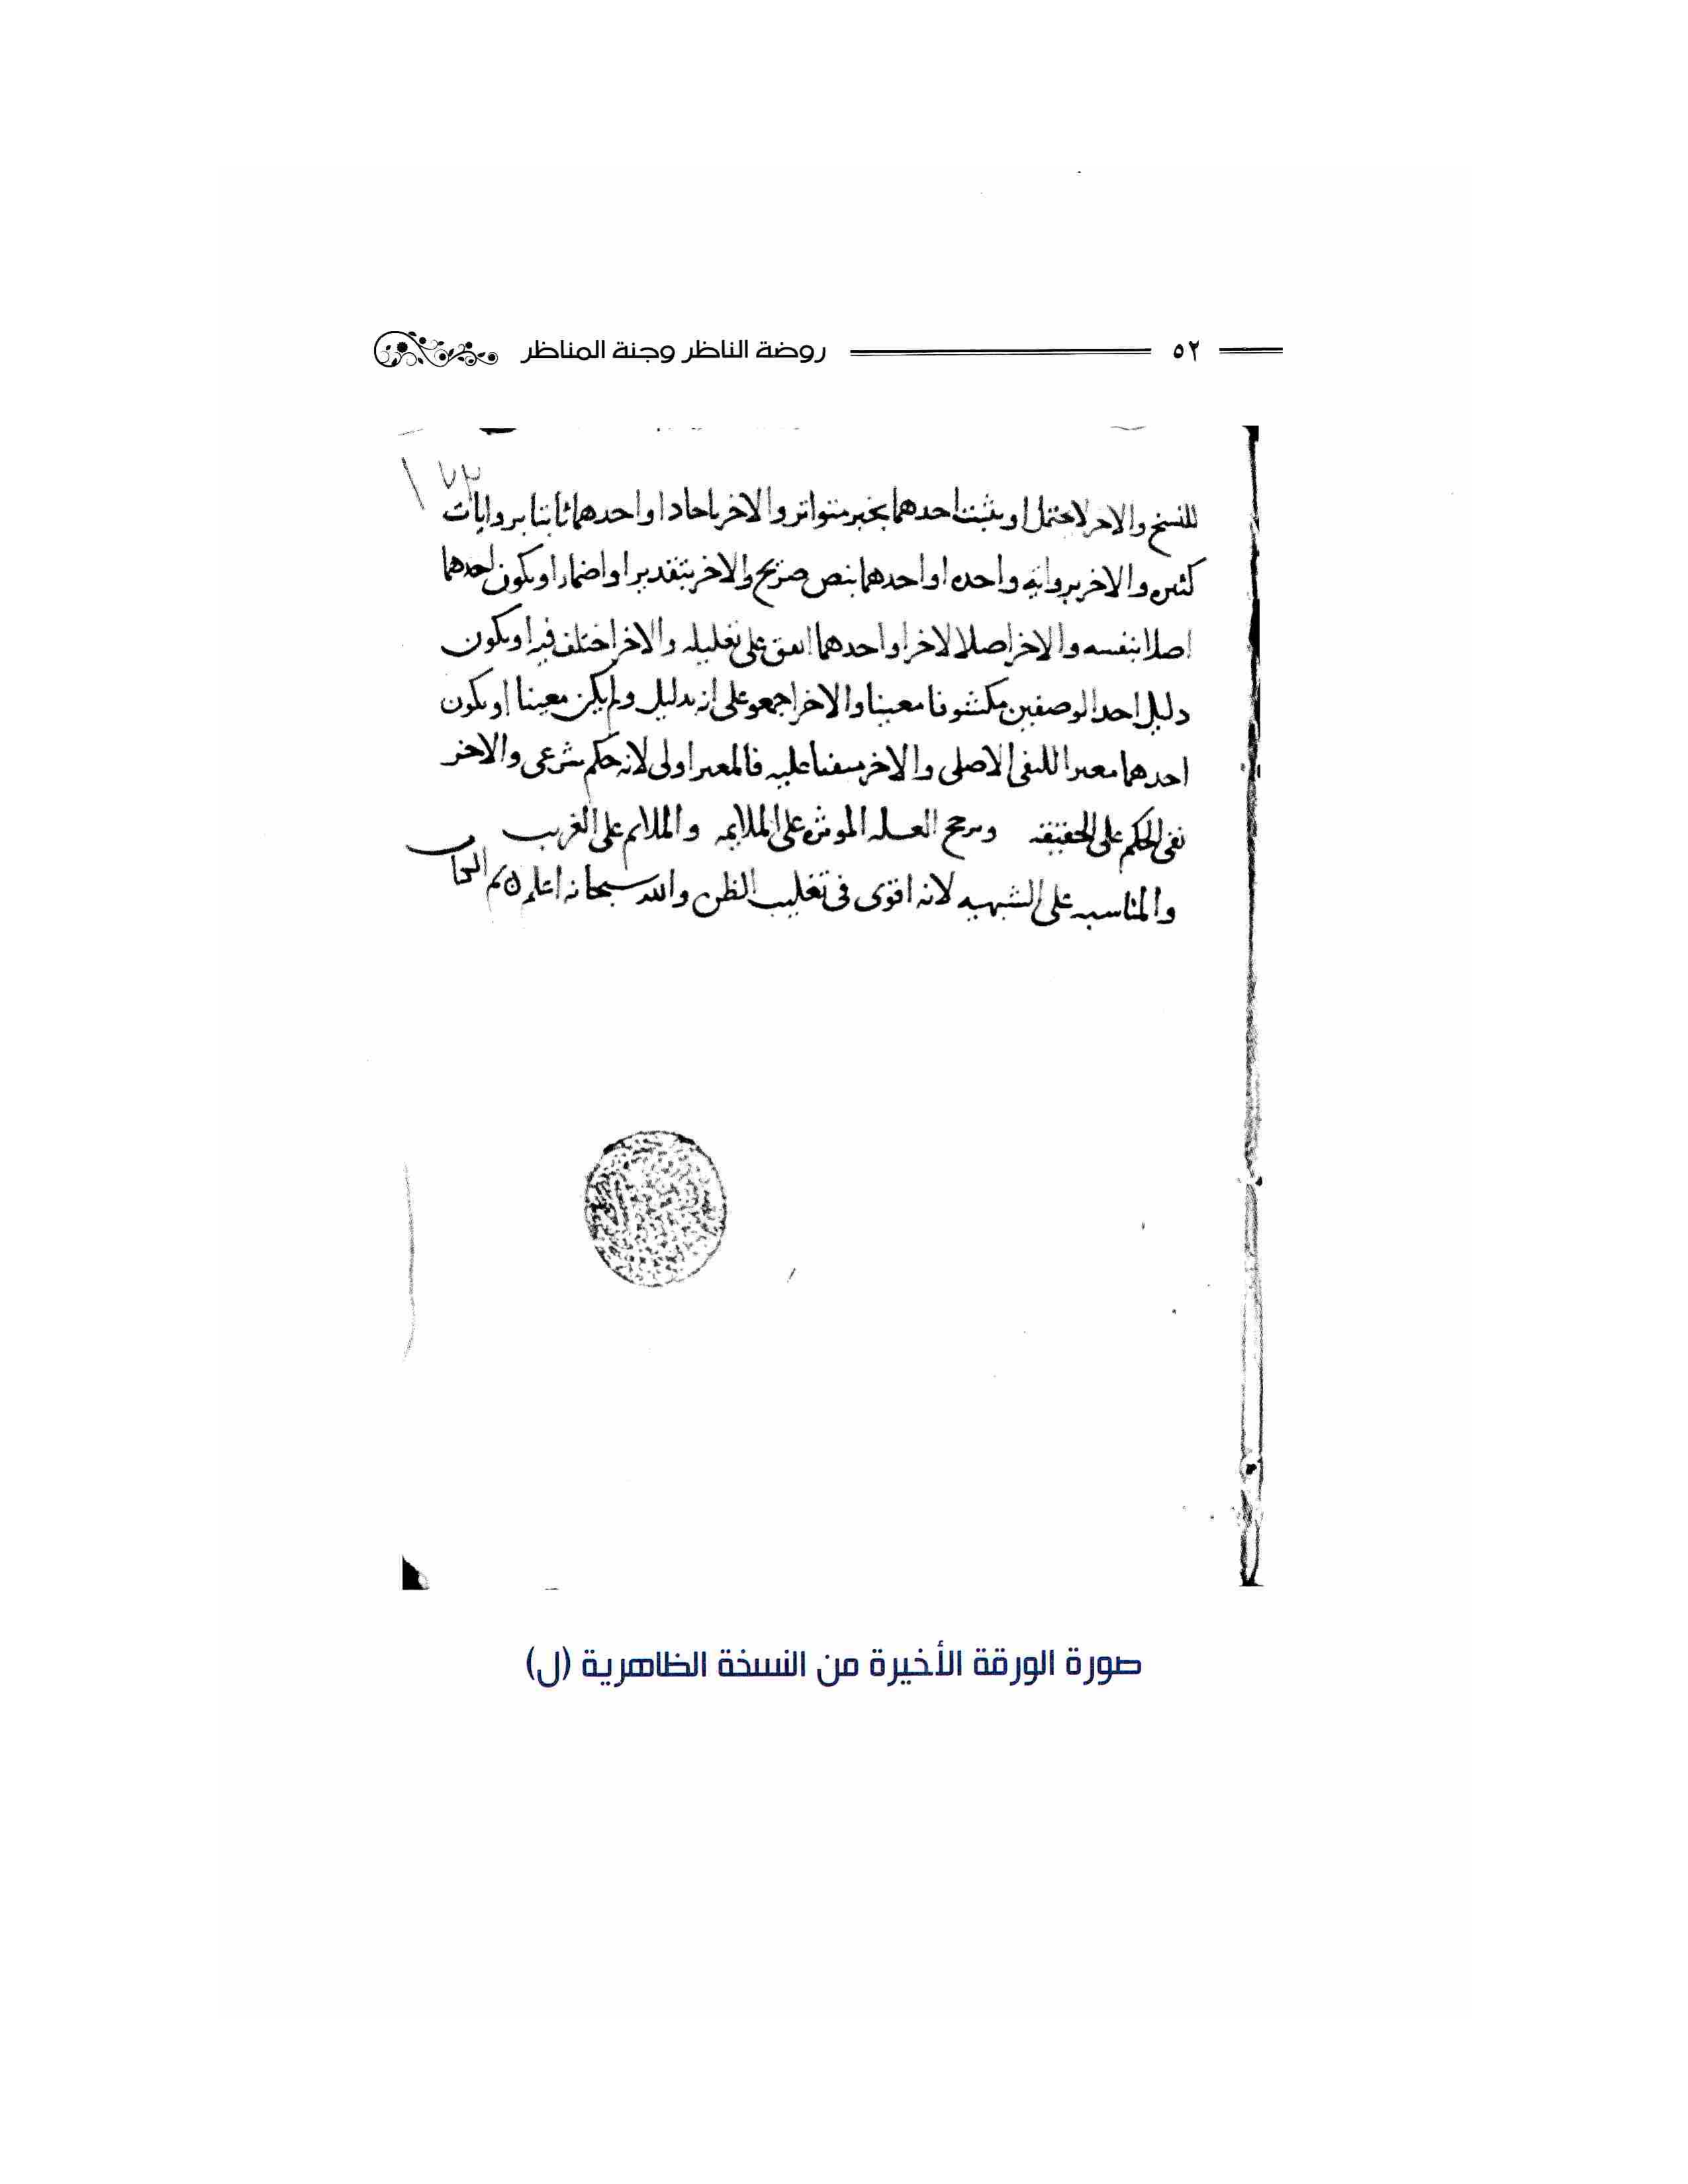 ٥٢ روضة الناظر وجنة المناظر
١٧٣
للنسخ والاخر لا يحتمل او يثبت احدهما بخبر متواتر والاخر باحاد او احدهما ثابتا بروايات
كثيره والاخر بروايه واحده او احدهما بنص صريح والاخر بتقدير او اضمار او يكون احدهما
اصلا بنفسه والاخر اصلا لاخر او احدهما اتفق على تعليله والاخر اختلف فيه او يكون
دليل احد الوصفين مكشوفا معينا والاخر اجمعو على انه بدليل ولم يكن معينا او يكون
احدهما مغيرا للنفي الاصلي والاخر مبقيا عليه فالمغير اولى لانه حكم شرعي والاخر
نفي الحكم على الحقيقه ويرجح العله الموثره على الملايمه والملايم على الغريب
والمناسبه على الشبهيه لانه اقوى في تغليب الظن والله سبحانه اعلم تم الكتاب
صورة الورقة الأخيرة من النسخة الظاهرية (ل)